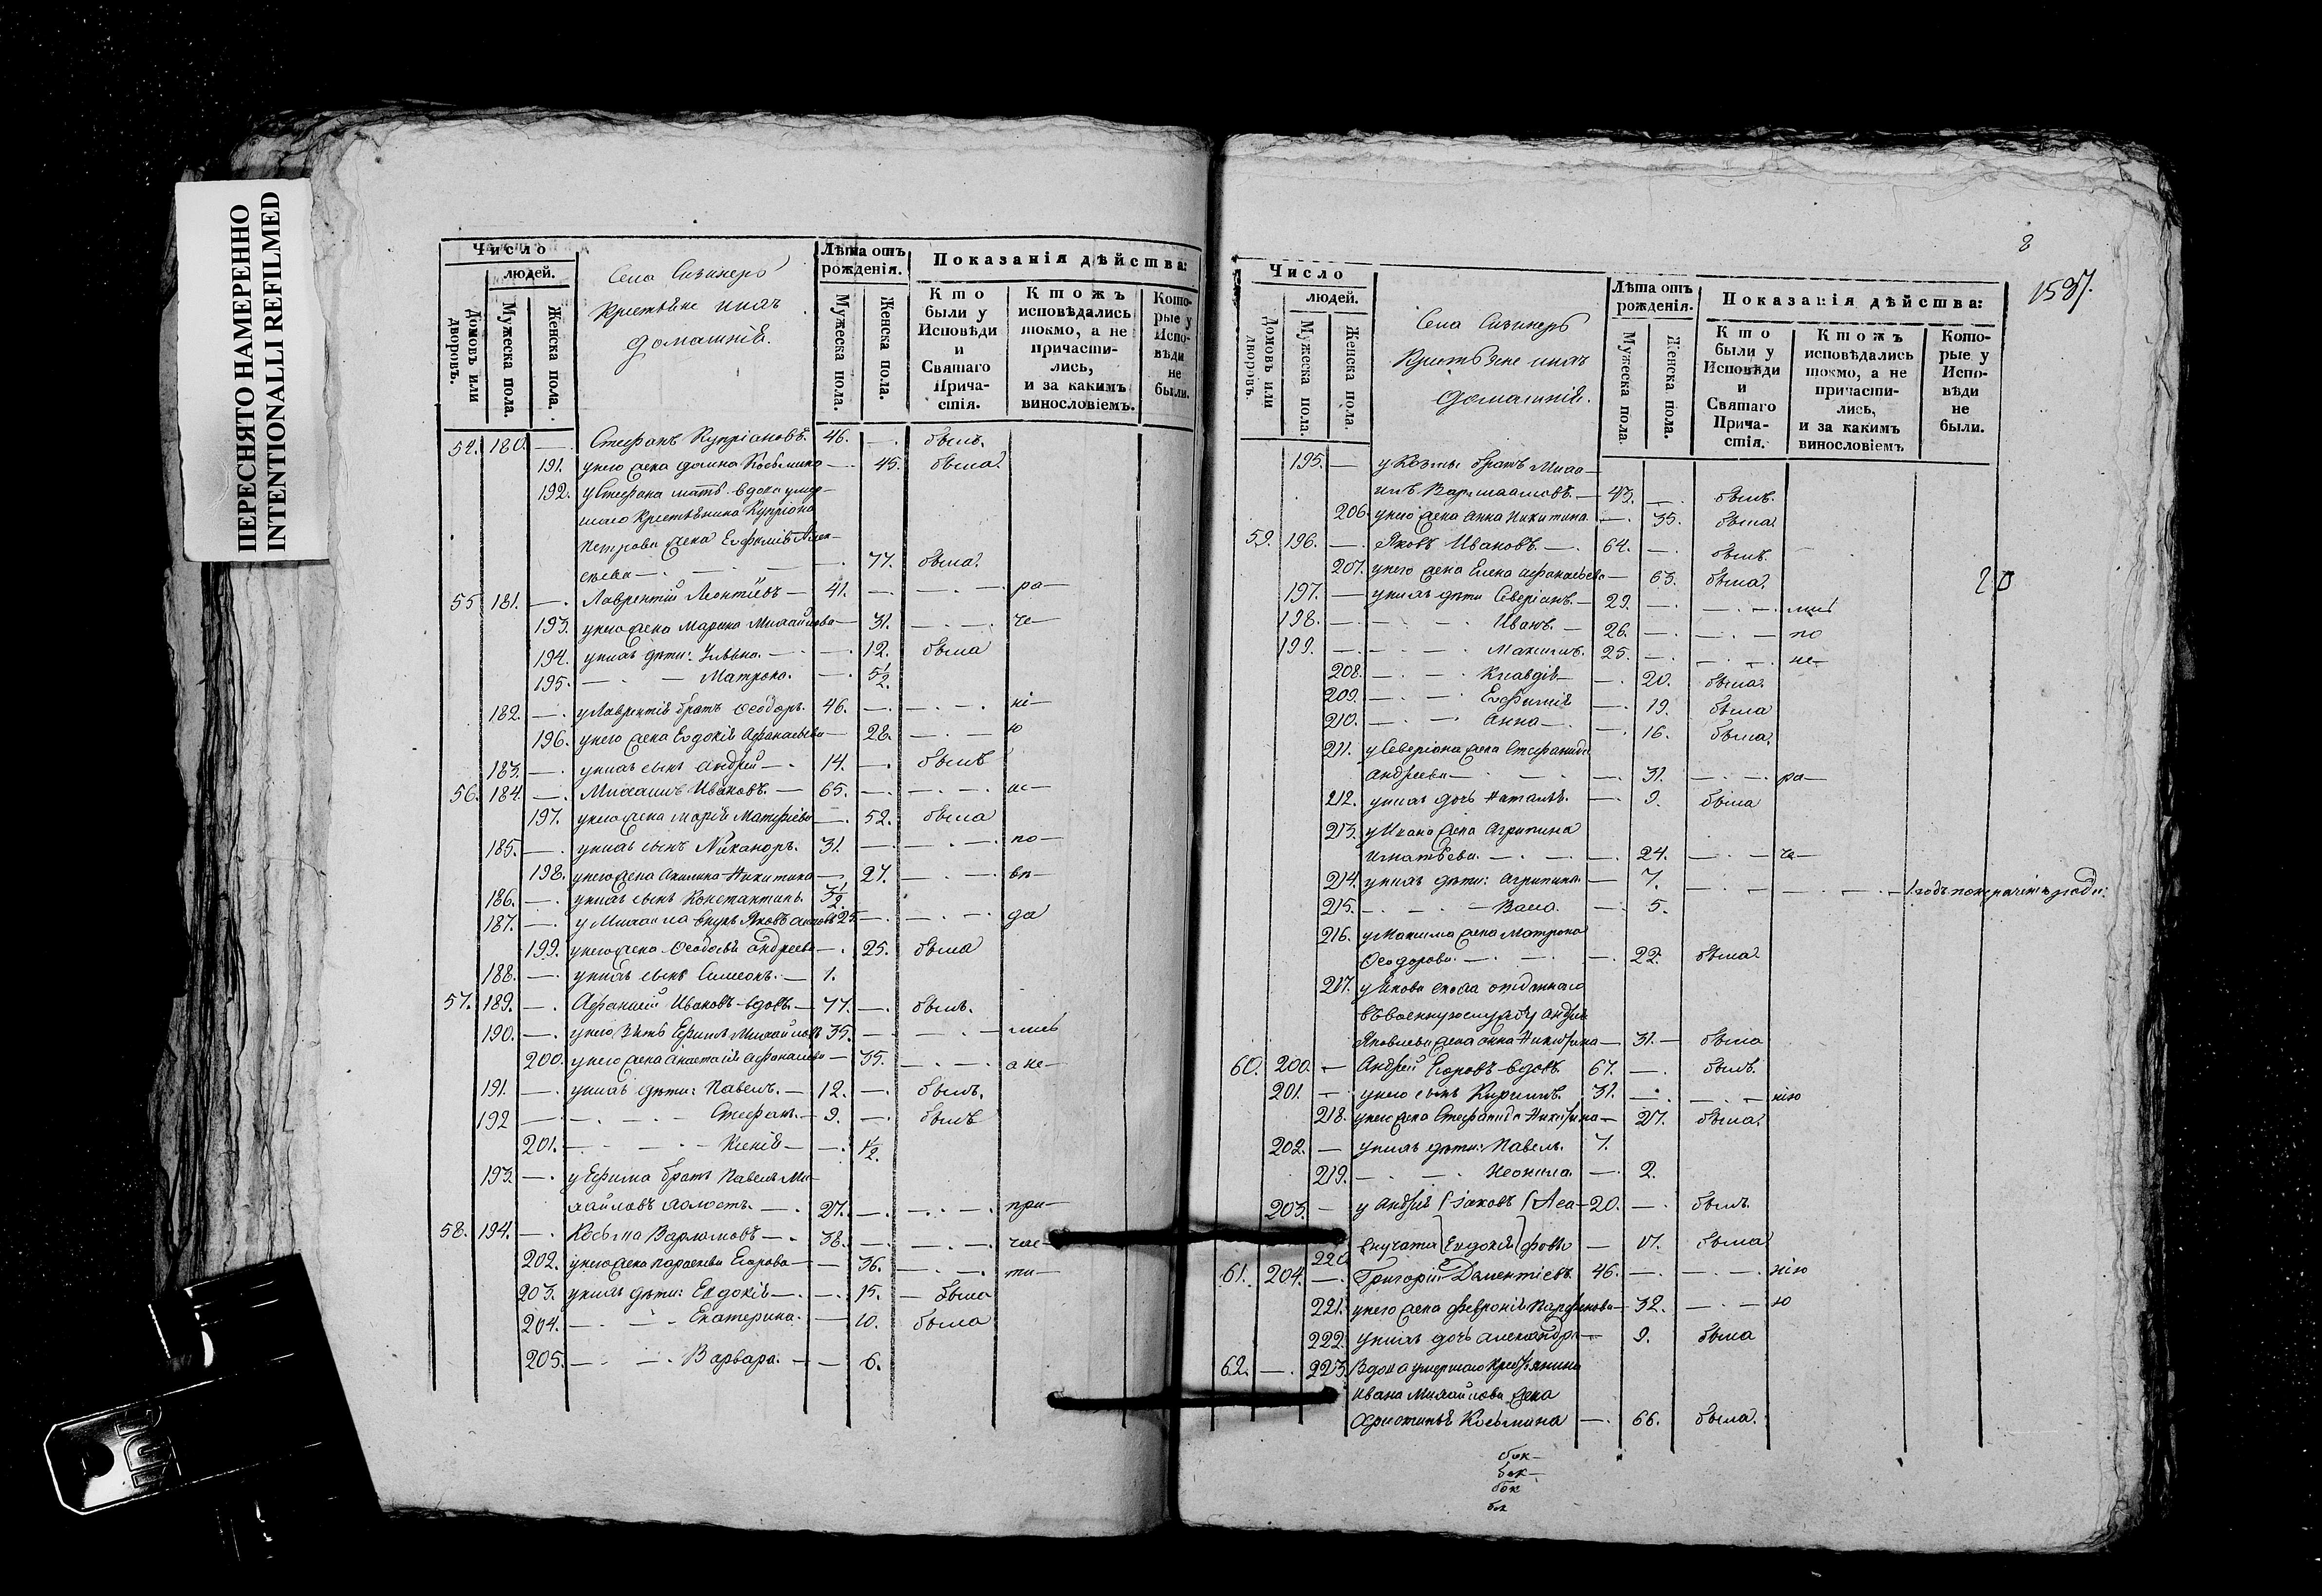 ПЕРЕСНЯТО НАМЕРЕННО
INTENTIONALLI REFILMED
Число
людей.
Домовъ или дворовъ.
Мужеска пола.
Женска пола.
Села
Крестьяне ихъ
домашніе.
Лѣта отъ рожденія.
Мужеска пола.
Женска пола.
Показанія дѣйства:
Кто были у Исповѣди и Святаго Прича-стія.
Ктожъ исповѣдались токмо, а не причасти-лись, и за какимъ винословіемъ.
Кото-рые у Испо-вѣди не были.
54. 180. — Стефанъ Купріановъ. 46. — былъ.
191. у него жена Козьмина — 45. была
192. у Стефана мать вдова умер-
шаго крестьянина Купріана
Петрова жена Евфимія Алек-
сѣева — 77. была
55 181. — Лаврентій Леонтіевъ — 41. — ра—
193. у него жена Марина Михайлова — 31. — че—
194. у нихъ дѣти: Ульяна. — 12. была
195. — Матрона. — 5 1/2.
182. — у Лаврентія братъ Ѳеодоръ. 46. — ні—
196. у него жена Евдокія Афанасьева — 28. — ю
183. — у нихъ сынъ Андрей — 14. — былъ
56. 184. — Михаилъ Ивановъ. — 65. — ис—
197. у него жена Марія Матфіева — 52. была
185. — у нихъ сынъ Никаноръ. 31. — по—
198. у него жена Акилина Никитина — 27. — вѣ—
186. — у нихъ сынъ Константинъ. 3 1/2.
187. — у Михаила внукъ Яковъ 25. — да
199. у него жена Ѳеодосія Андреева — 25. была
188. — у нихъ сынъ Симеонъ. — 1.
57. 189. — Афанасій Ивановъ вдовъ. — 77. — былъ.
190. — у него зять Ефимъ Михайловъ 35. — лись
200. у него жена Анастасія Афанасьева — 35. — а не—
191. — у нихъ дѣти: Павелъ. — 12. — былъ.
192 — Стефанъ. — 9. — былъ
201. — Ксенія — 1/2.
193. — у Ефима братъ Павелъ Ми-
хайловъ холостъ. — 27. — при—
58. 194. — Косьма Варламовъ — 38. — час—
202. у него жена Параскева Егорова — 36. — ти—
203. у нихъ дѣти: Евдокія — 15. — была
204. — Екатерина. — 10. была
205. — Варвара. — 6.
8
1537.
Число
людей.
Домовъ или дворовъ.
Мужеска пола.
Женска пола.
Села
Крестьяне ихъ
домашніе.
Лѣта отъ рожденія.
Мужеска пола.
Женска пола.
Показанія дѣйства:
Кто были у Исповѣди и Святаго Прича-стія.
Ктожъ исповѣдались токмо, а не причасти-лись, и за какимъ винословіемъ
Кото-рые у Испо-вѣди не были.
195. — у Козмы братъ Миха—
илъ Варлаамовъ. — 43. — былъ.
206. у него жена Анна Никитина. — 35. была
59. 196. — Яковъ Ивановъ. — 64. — былъ.
207. у него жена Елена Афанасьева — 63. была
197. — у нихъ дѣти Северіанъ. — 29. — лись
198. — Иванъ. — 26. — по
199. — Максимъ. 25. — не—
208. — Клавдія — 20. была
209. — Евфимія — 19. была
210. — Анна — 16. была
211. у Северіана жена Стефанида
Андреева — 31. — ра—
212. у нихъ дочь Наталія. — 9. была
213. у Ивана жена Агрипина
Игнатьева. — 24. — че—
214. у нихъ дѣти: Агрипина. — 7.
215. — Васса. — 5.
216. у Максима жена Матрона
Ѳеодорова. — 22. была
217. у Якова сноха отданнаго
въ военную службу Андрея
Яковлева жена Анна Никитина — 31. — была
60. 200. — Андрей Егоровъ вдовъ 67. — былъ.
201. — у него сынъ Кириллъ. 31. — нію
218. у него жена Стефанида Никитина — 27. была
202. — у нихъ дѣти: Павелъ. 7.
219. — Неонила. — 2.
203. — у Андрея Іаковъ 20. — былъ
220 внучата Евдокія — 17. была
61. 204. — Григорій Дементіевъ. 46. — нію
221. у него жена Февронія Парфенова — 32. — ю
222. у нихъ дочь Александра — 9. была
62. — 223. Вдова умершаго крестьянина
Ивана Михайлова жена
Христинья Косьмина — 66. была.
20